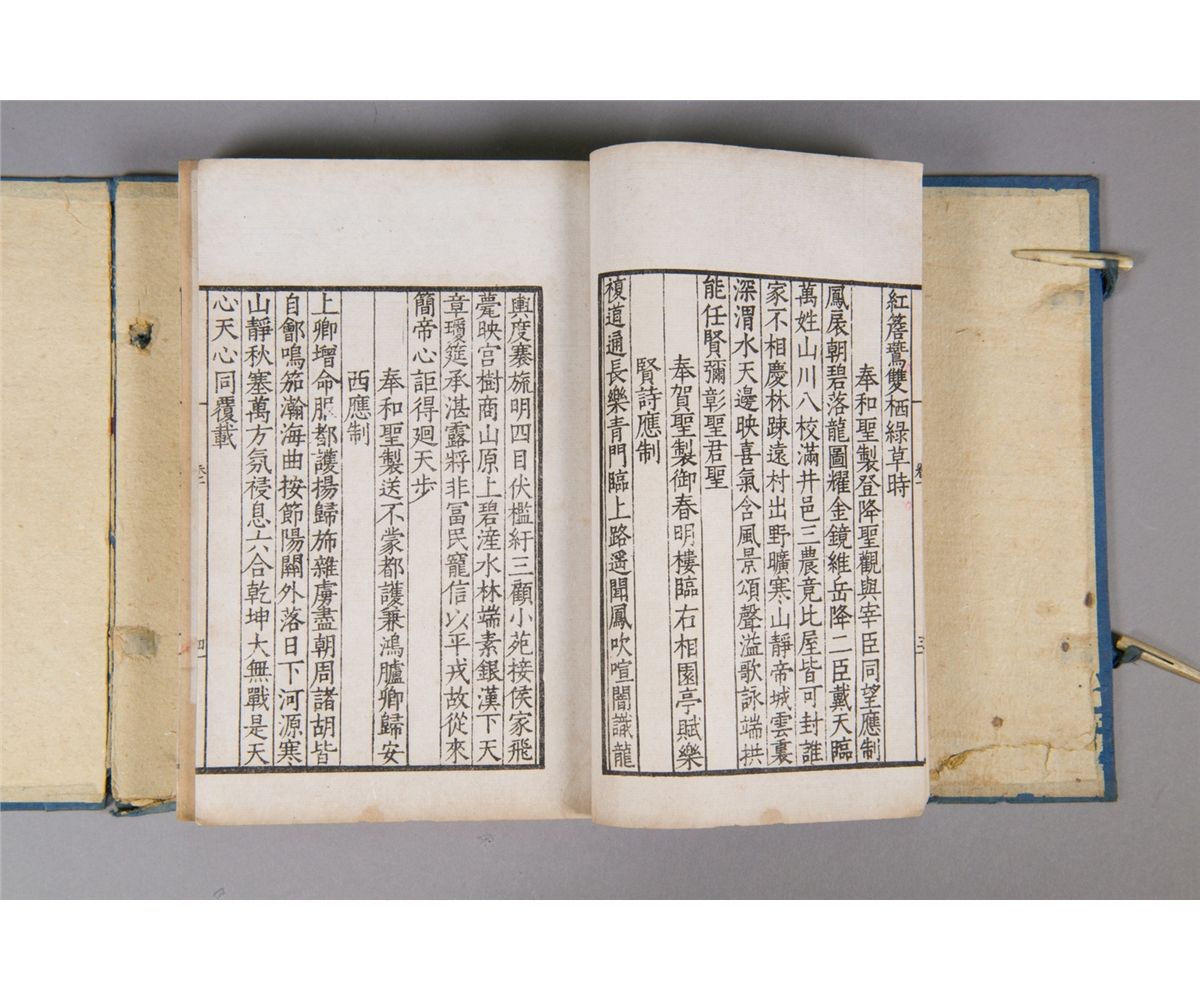 紅簷鷟雙栖綠草時
奉和聖製登降聖觀與宰臣同望應制
鳳扆朝碧落龍圖耀金鏡維岳降二臣戴天臨
萬姓山川八校滿井邑三農竟比屋皆可封誰
家不相慶林疎遠村出野曠寒山靜帝城雲裏
深渭水天邊映喜氣含風景頌聲溢歌詠端拱
能任賢彌彰聖君聖
奉賀聖製御春明樓臨右相園亭賦樂
賢詩應制
複道通長樂青門臨上路遥聞鳳吹喧闇識龍
輿度褰旒明四目伏檻紆三顧小苑接侯家飛
甍映宮樹商山原上碧滻水林端素銀漢下天
章瓊筵承湛露將非冨民寵信以平戎故從來
簡帝心詎得廻天步
奉和聖製送不蒙都護兼鴻臚卿歸安
西應制
上卿增命服都護揚歸斾雜虜盡朝周諸胡皆
自鄶鳴笳瀚海曲按節陽關外落日下河源寒
山靜秋塞萬方氛祲息六合乾坤大無戰是天
心天心同覆載
卷一
三
卷一
四